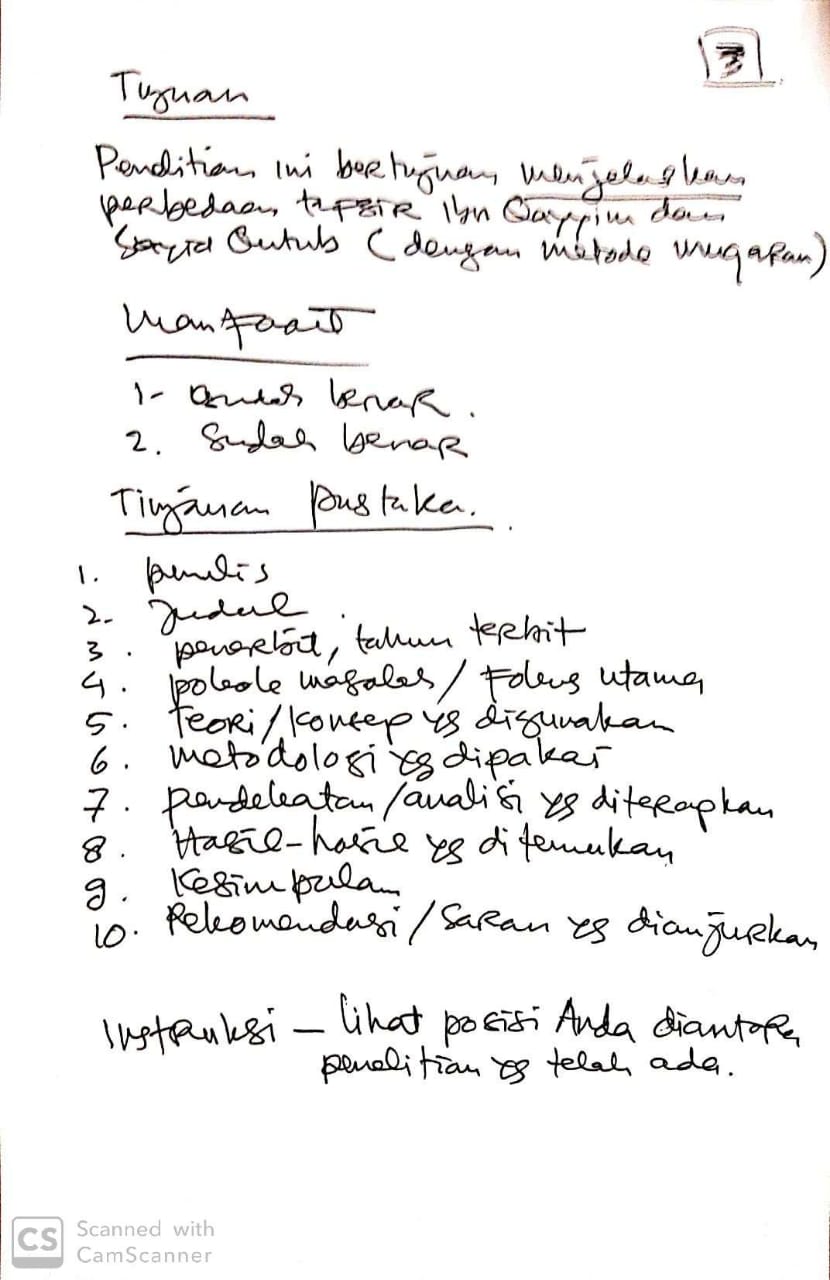 3
Tujuan
Penelitian ini bertujuan menjelaskan
perbedaan tafsir Ibn Qayyim dan
Sayyid Qutub (dengan metode muqaran)
Manfaat
1- Sudah benar.
2. Sudah benar
Tinjauan pustaka.
1. penulis
2- Judul
3. penerbit, tahun terbit
4. pokok masalah / Fokus utama
5. Teori / konsep yg digunakan
6. metodologi yg dipakai
7. pendekatan / analisi yg diterapkan
8. Hasil-hasil yg ditemukan
9. Kesimpulan
10. Rekomendasi / saran yg dianjurkan
Instruksi – lihat posisi Anda diantara
penelitian yg telah ada.
CS Scanned with
CamScanner